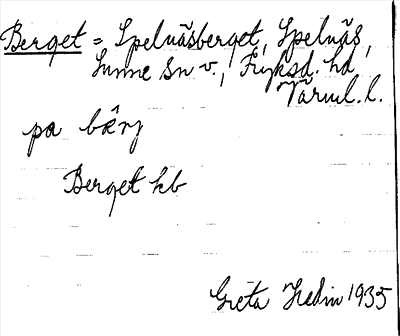 Berget = Spelnäsberget, Spelnäs,
Sunne Sn v., Fryksd. hd
Värml. l.
pa bærj
Berget kb
Greta Hedin 1935